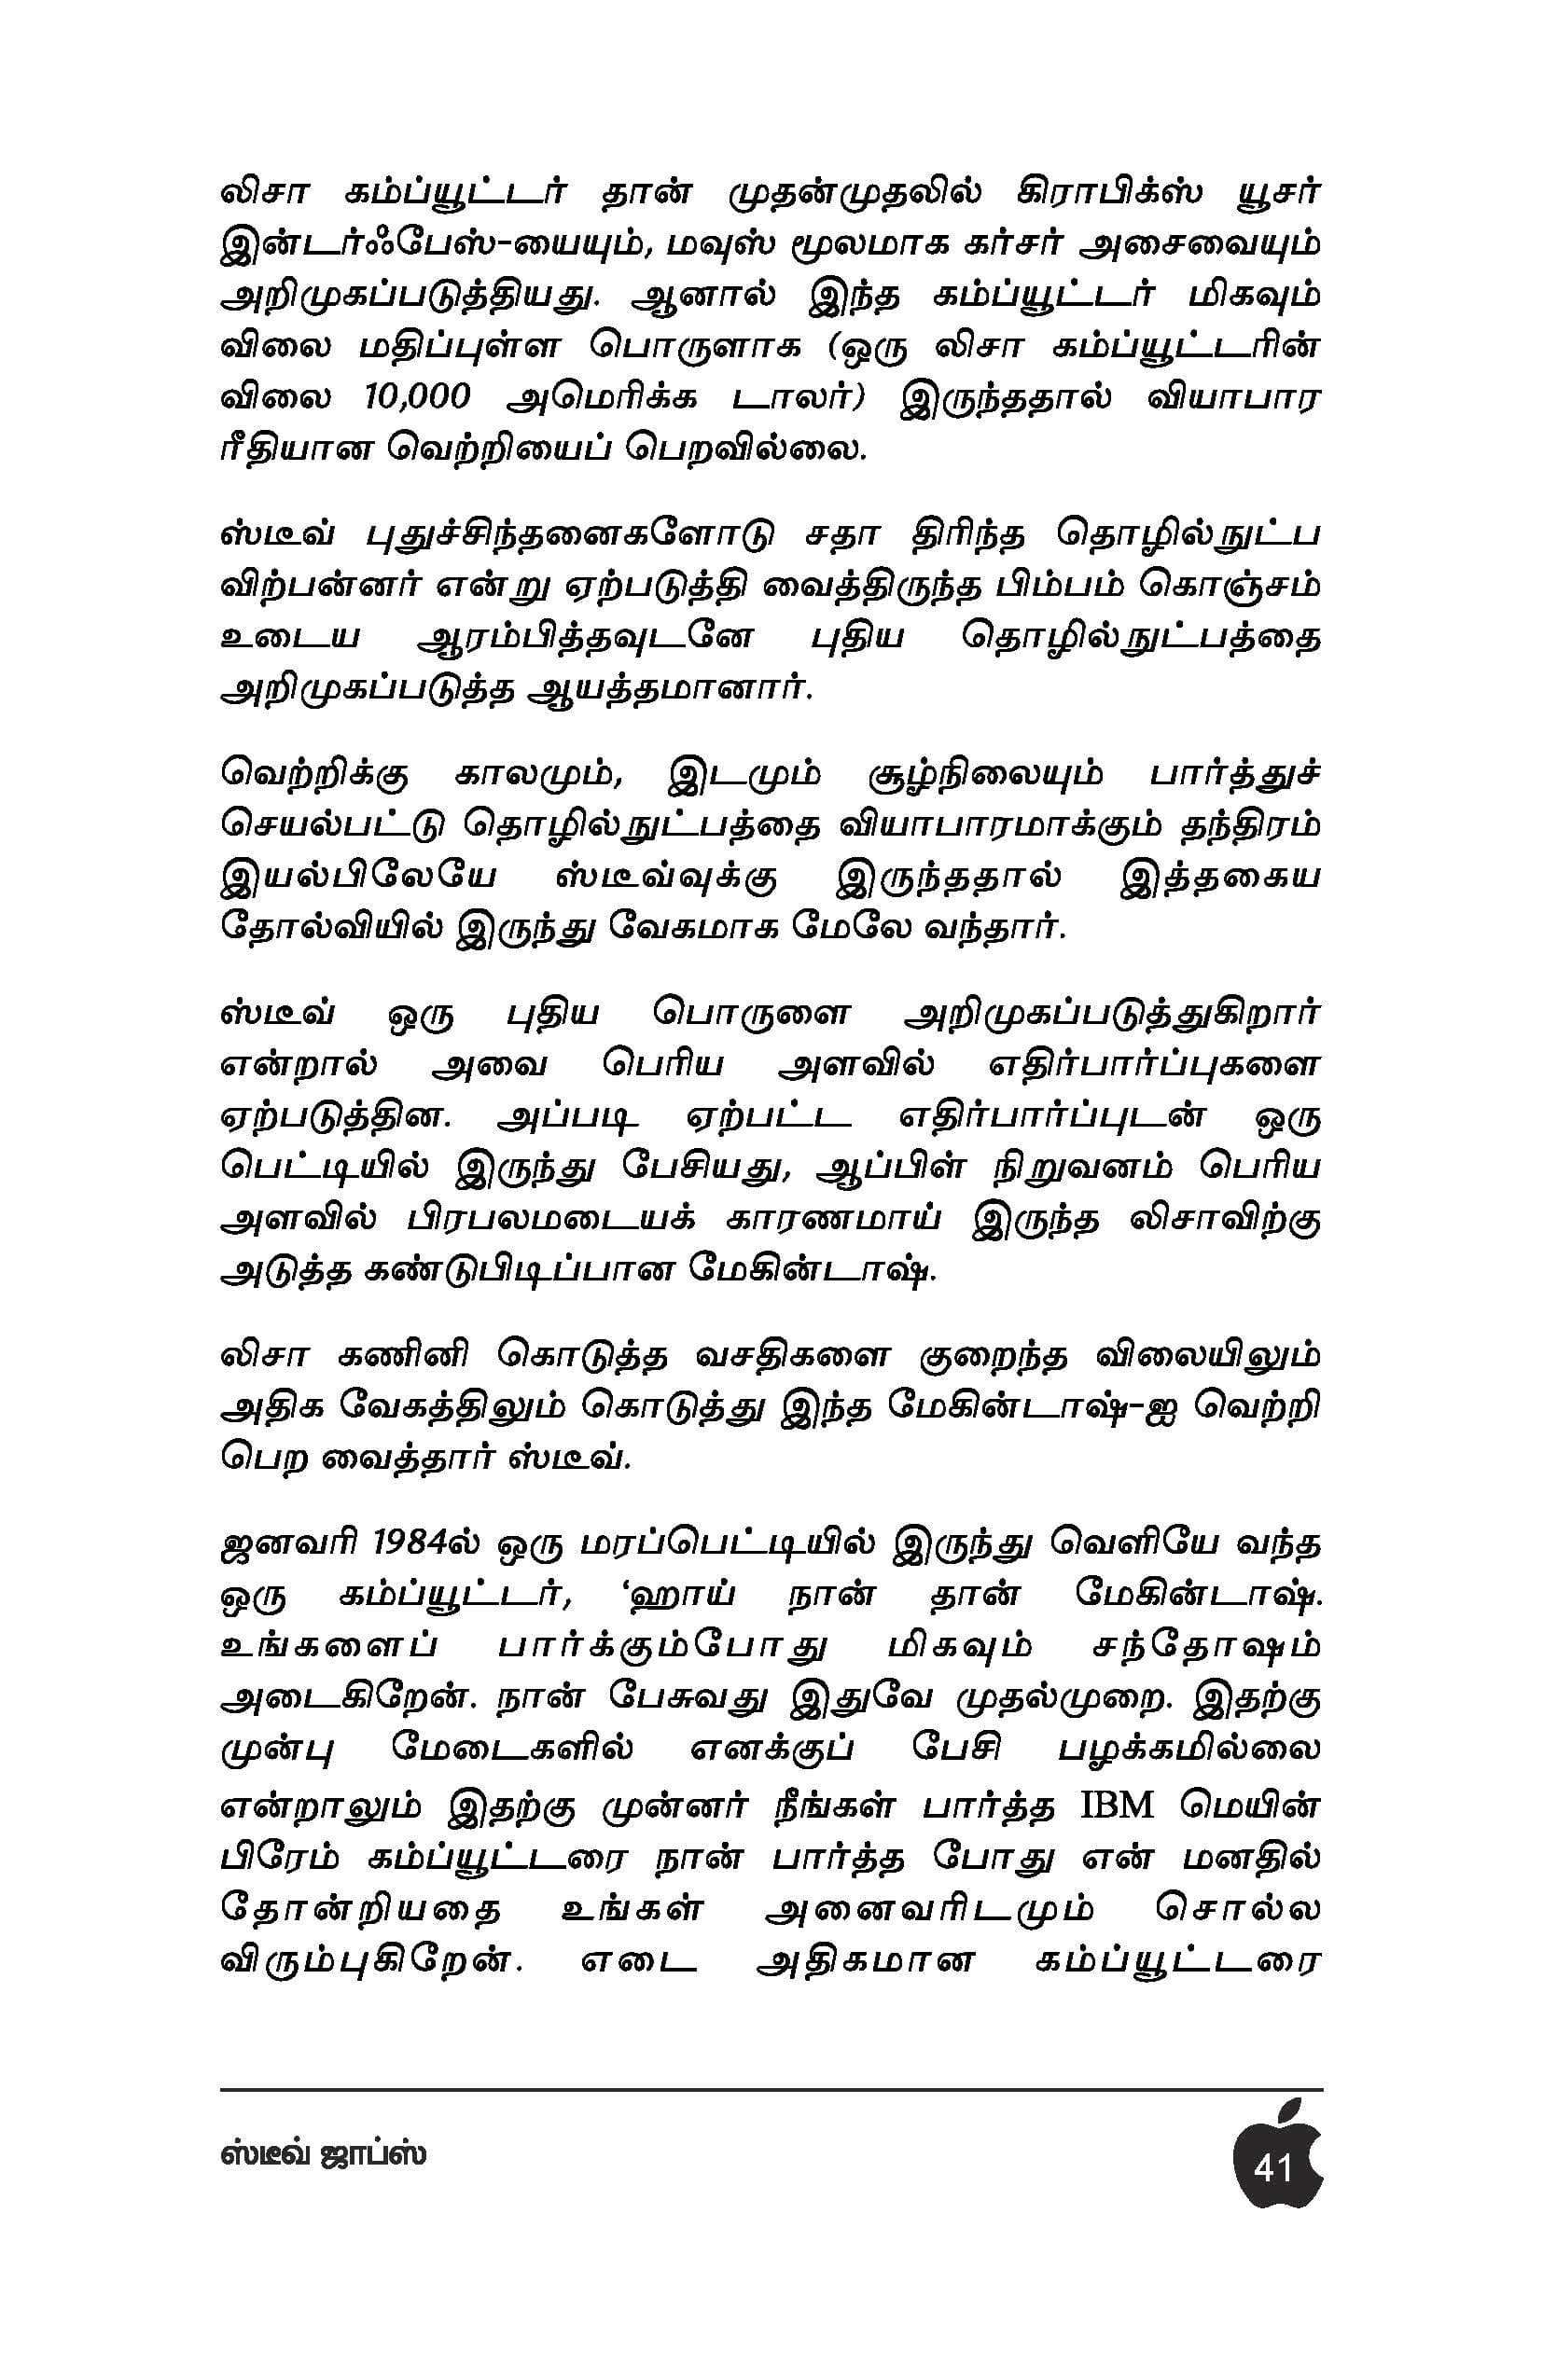 லிசா கம்ப்யூட்டர் தான் முதன்முதலில் கிராபிக்ஸ் யூசர்
இன்டர்ஃபேஸ்-யையும், மவுஸ் மூலமாக கர்சர் அசைவையும்
அறிமுகப்படுத்தியது. ஆனால் இந்த கம்ப்யூட்டர் மிகவும்
விலை மதிப்புள்ள பொருளாக (ஒரு லிசா கம்ப்யூட்டரின்
விலை 10,000 அமெரிக்க டாலர்) இருந்ததால் வியாபார
ரீதியான வெற்றியைப் பெறவில்லை.
ஸ்டீவ் புதுச்சிந்தனைகளோடு சதா திரிந்த தொழில்நுட்ப
விற்பன்னர் என்று ஏற்படுத்தி வைத்திருந்த பிம்பம் கொஞ்சம்
உடைய ஆரம்பித்தவுடனே புதிய தொழில்நுட்பத்தை
அறிமுகப்படுத்த ஆயத்தமானார்.
வெற்றிக்கு காலமும், இடமும் சூழ்நிலையும் பார்த்துச்
செயல்பட்டு தொழில்நுட்பத்தை வியாபாரமாக்கும் தந்திரம்
இயல்பிலேயே ஸ்டீவ்வுக்கு இருந்ததால் இத்தகைய
தோல்வியில் இருந்து வேகமாக மேலே வந்தார்.
ஸ்டீவ் ஒரு புதிய பொருளை அறிமுகப்படுத்துகிறார்
என்றால் அவை பெரிய அளவில் எதிர்பார்ப்புகளை
ஏற்படுத்தின. அப்படி ஏற்பட்ட எதிர்பார்ப்புடன் ஒரு
பெட்டியில் இருந்து பேசியது, ஆப்பிள் நிறுவனம் பெரிய
அளவில் பிரபலமடையக் காரணமாய் இருந்த லிசாவிற்கு
அடுத்த கண்டுபிடிப்பான மேகின்டாஷ்.
லிசா கணினி கொடுத்த வசதிகளை குறைந்த விலையிலும்
அதிக வேகத்திலும் கொடுத்து இந்த மேகின்டாஷ்-ஐ வெற்றி
பெற வைத்தார் ஸ்டீவ்.
ஜனவரி 1984ல் ஒரு மரப்பெட்டியில் இருந்து வெளியே வந்த
ஒரு கம்ப்யூட்டர், ‘ஹாய் நான் தான் மேகின்டாஷ்.
உங்களைப் பார்க்கும்போது மிகவும் சந்தோஷம்
அடைகிறேன். நான் பேசுவது இதுவே முதல்முறை. இதற்கு
முன்பு மேடைகளில் எனக்குப் பேசி பழக்கமில்லை
என்றாலும் இதற்கு முன்னர் நீங்கள் பார்த்த IBM மெயின்
பிரேம் கம்ப்யூட்டரை நான் பார்த்த போது என் மனதில்
தோன்றியதை உங்கள் அனைவரிடமும் சொல்ல
விரும்புகிறேன். எடை அதிகமான கம்ப்யூட்டரை
ஸ்டீவ் ஜாப்ஸ்
41